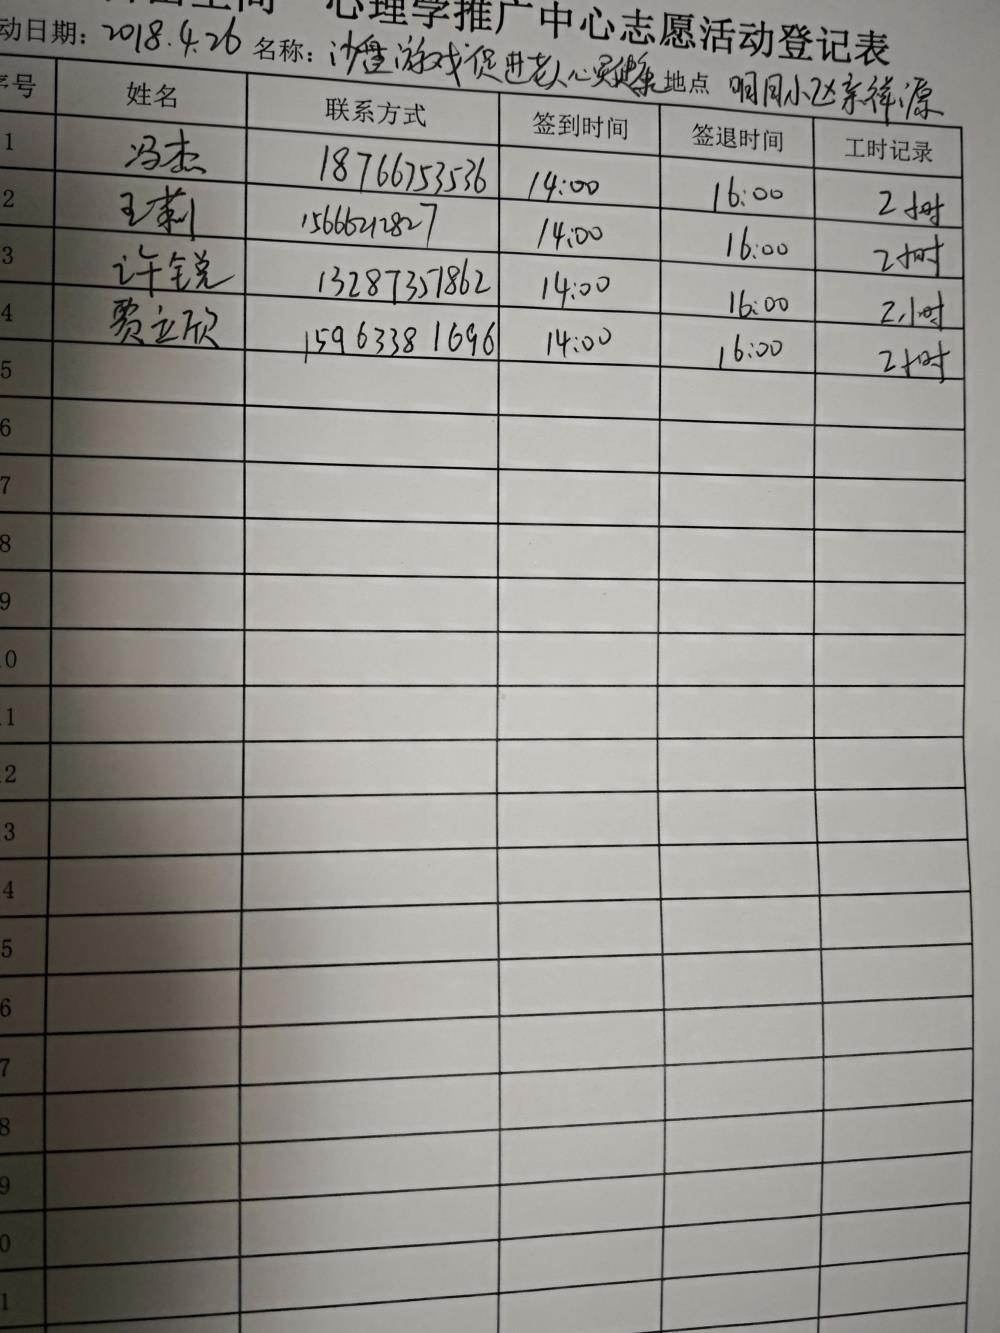 心理学推广中心志愿活动登记表
动日期：2018.4.26 名称：沙盘游戏促进老人心灵健康 地点 明月小区亲祥源
序号 姓名 联系方式 签到时间 签退时间 工时记录
1 冯杰 18766753536 14:00 16:00 2小时
2 王莉 15666212827 14:00 16:00 2小时
3 许锐 13287351862 14:00 16:00 2小时
4 贾立欣 15963381696 14:00 16:00 2小时
5
6
7
8
9
10
11
12
3
4
5
6
7
8
9
0
1